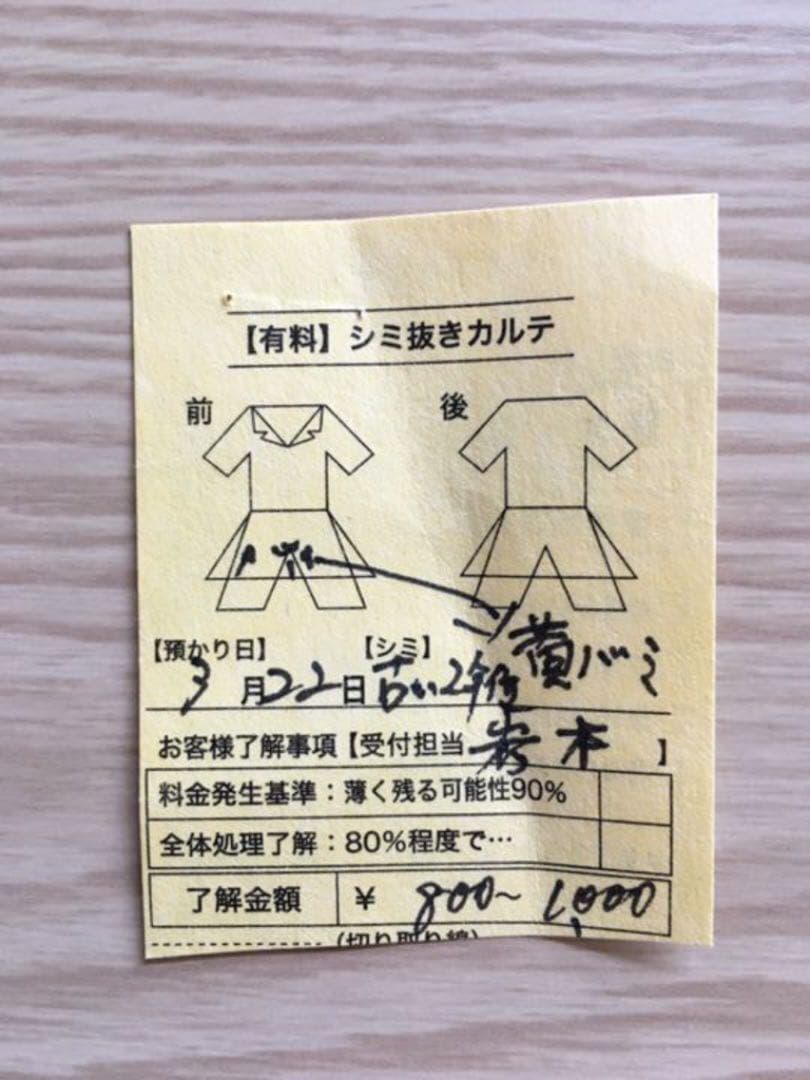 【有料】シミ抜きカルテ
前 後
【預かり日】 【シミ】 黄バミ
3月22日 古い2年位
お客様了解事項【受付担当 本 】
料金発生基準：薄く残る可能性90%
全体処理了解：80%程度で…
了解金額 ¥ 800~1,000
(切り取り線)